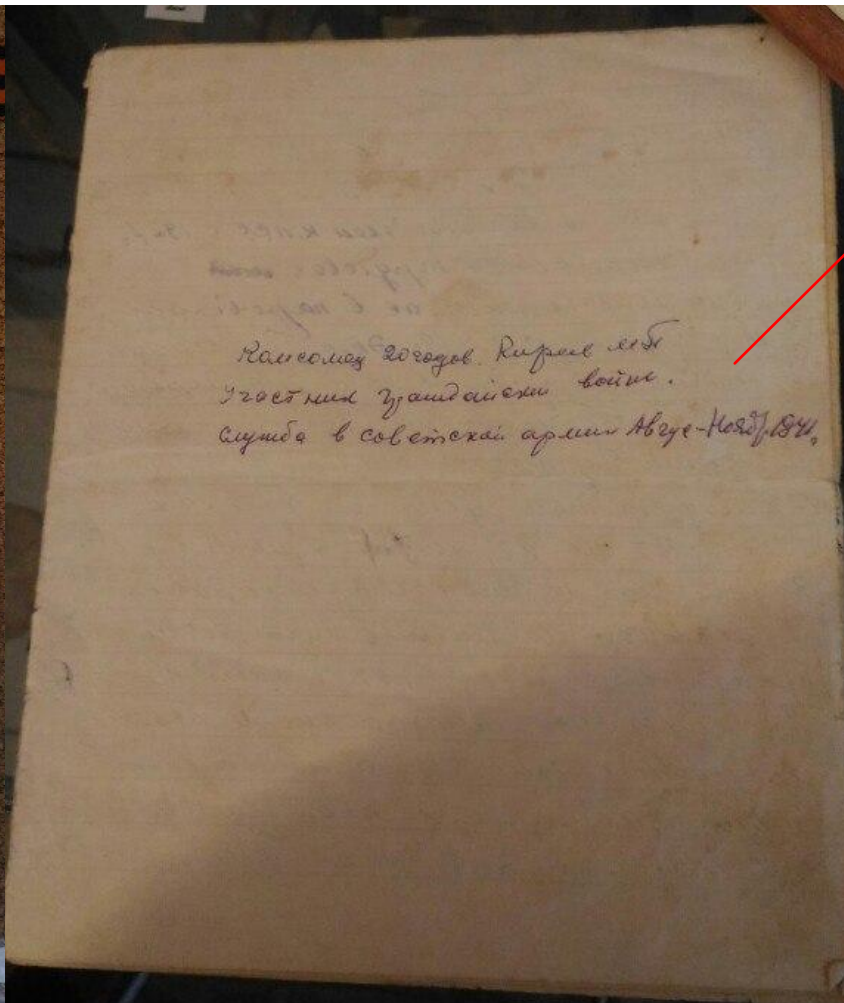 Комсомец 20 годов.
Участник граждански войне.
Служба в советской армии Авгус-Ноябр 1941.